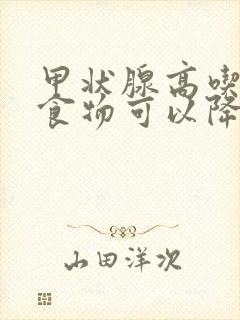 甲状腺高喫
食物可以降
山田洋次